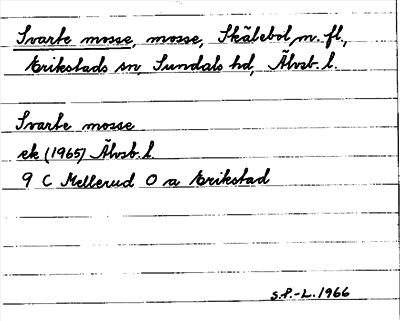 Svarte mosse, mosse, Skälebol m. fl.,
Erikstads sn, Sundals hd, Älvsb. l.
Svarte mosse
ek (1965) Älvsb. l.
9 C Mellerud O a Erikstad
S.P.-L. 1966